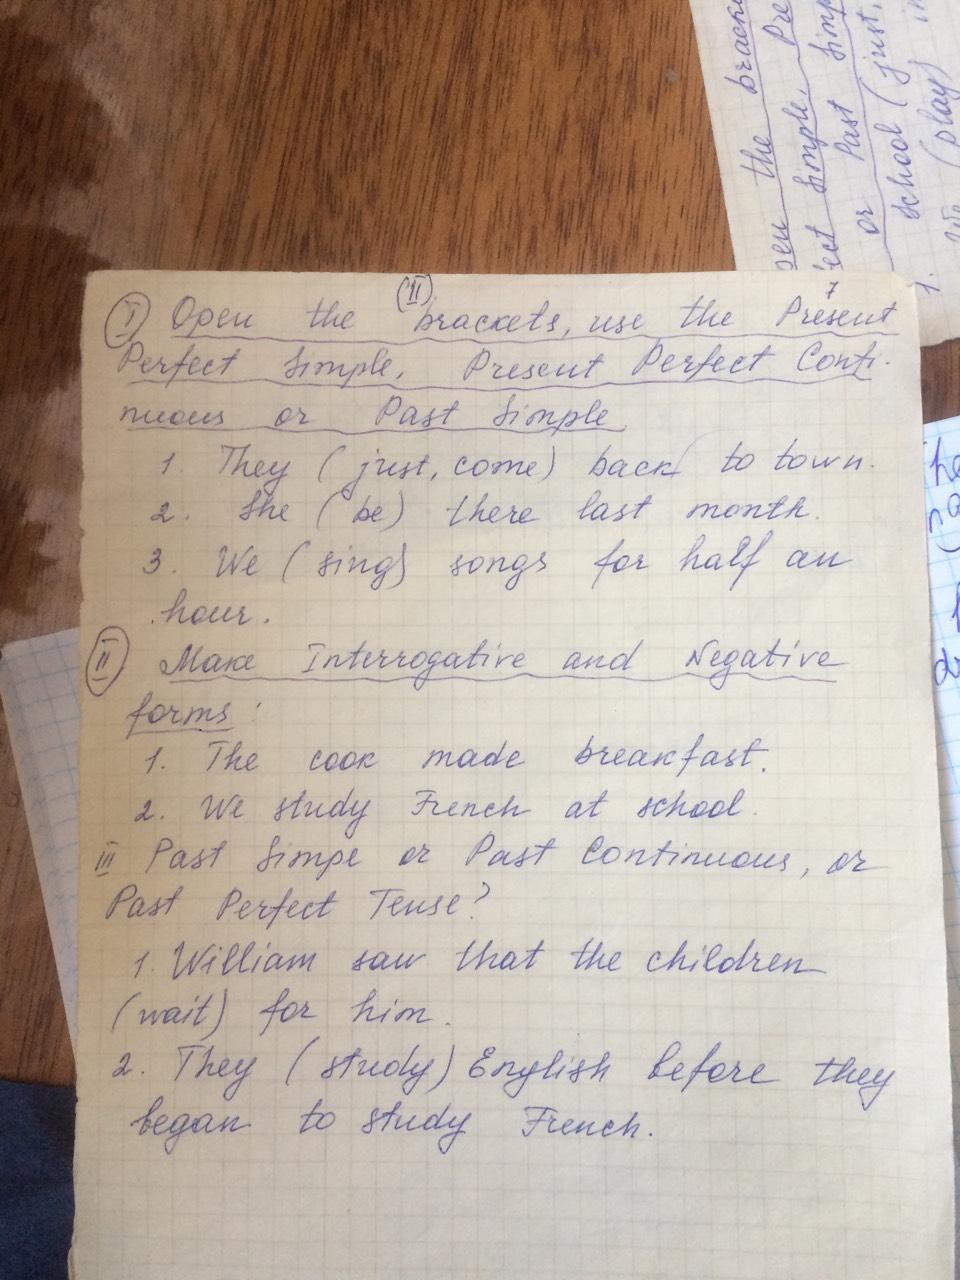 (II)
7
I Open the brackets, use the Present
Perfect Simple, Present Perfect Conti-
nuous or Past Simple
1. They (just, come) back to town.
2. She (be) there last month.
3. We (sing) songs for half an
hour.
II Make Interrogative and Negative
forms:
1. The cook made breakfast.
2. We study French at school.
III Past Simpe or Past Continuous, or
Past Perfect Tense?
1. William saw that the children
(wait) for him.
2. They (study) English before they
began to study French.
the bracke
Simple, Pre
or Past Simp
school (just,
1. (play) in